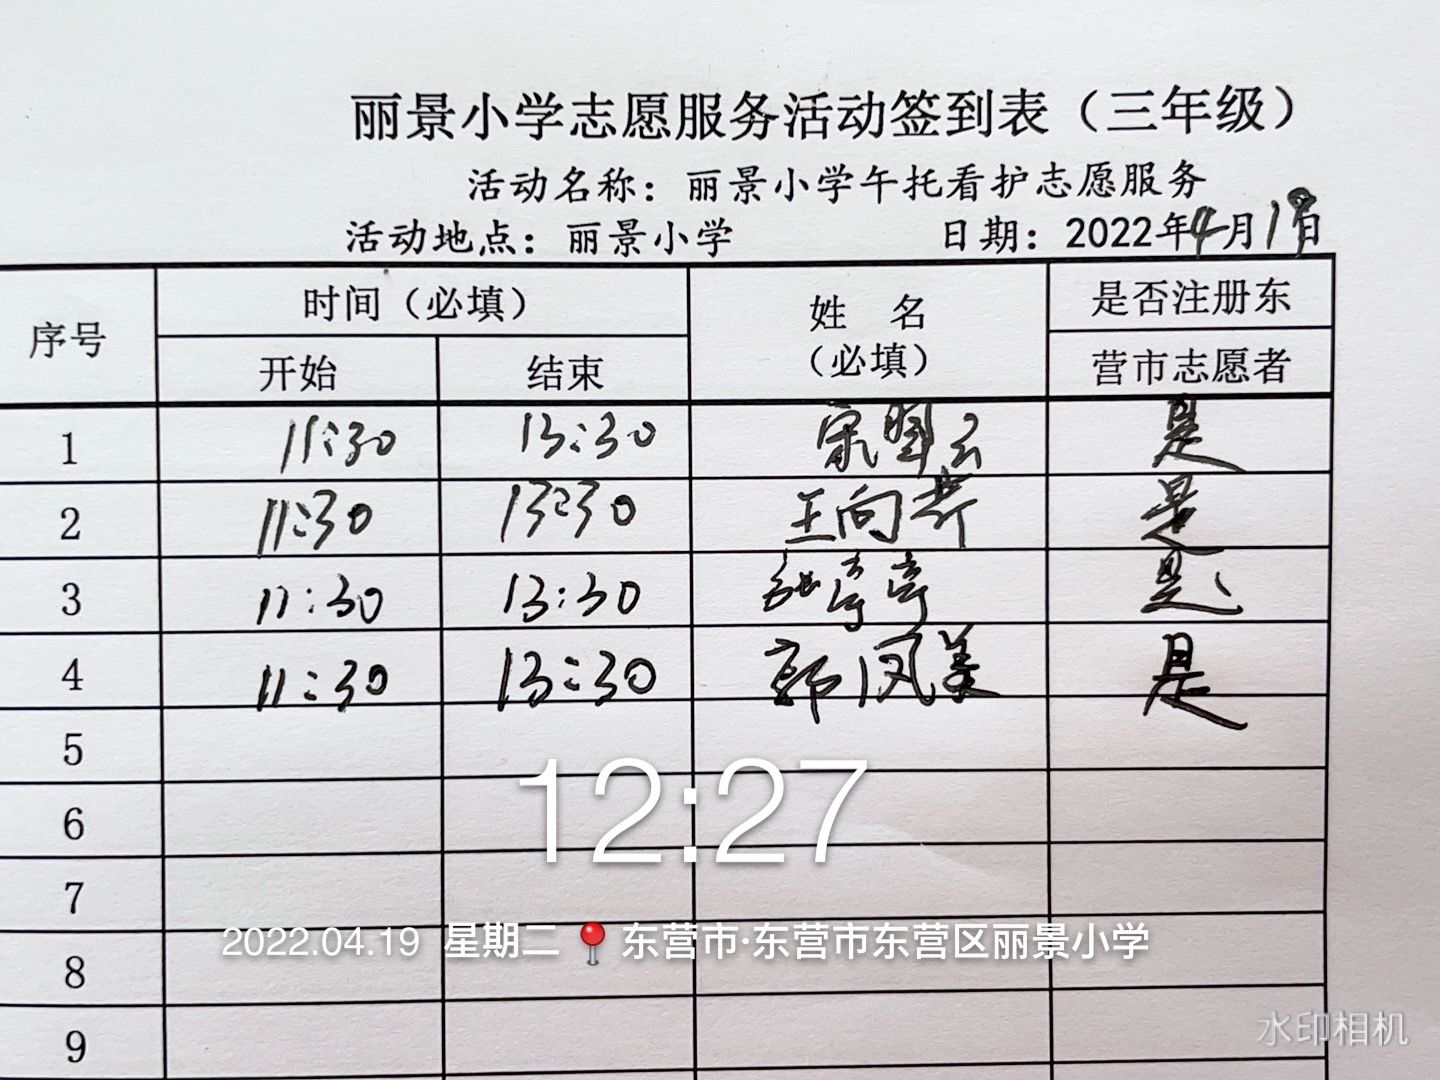 丽景小学志愿服务活动签到表（三年级）
活动名称：丽景小学午托看护志愿服务
活动地点：丽景小学 日期：2022年4月19日
序号 时间（必填） 姓 名（必填） 是否注册东营市志愿者
开始 结束
1 11:30 13:30 宋 云 是
2 11:30 13:30 王向 是
3 11:30 13:30 张亭亭 是
4 11:30 13:30 郭凤美 是
5
12:27
6
7
2022.04.19 星期二 东营市·东营市东营区丽景小学
8
水印相机
9